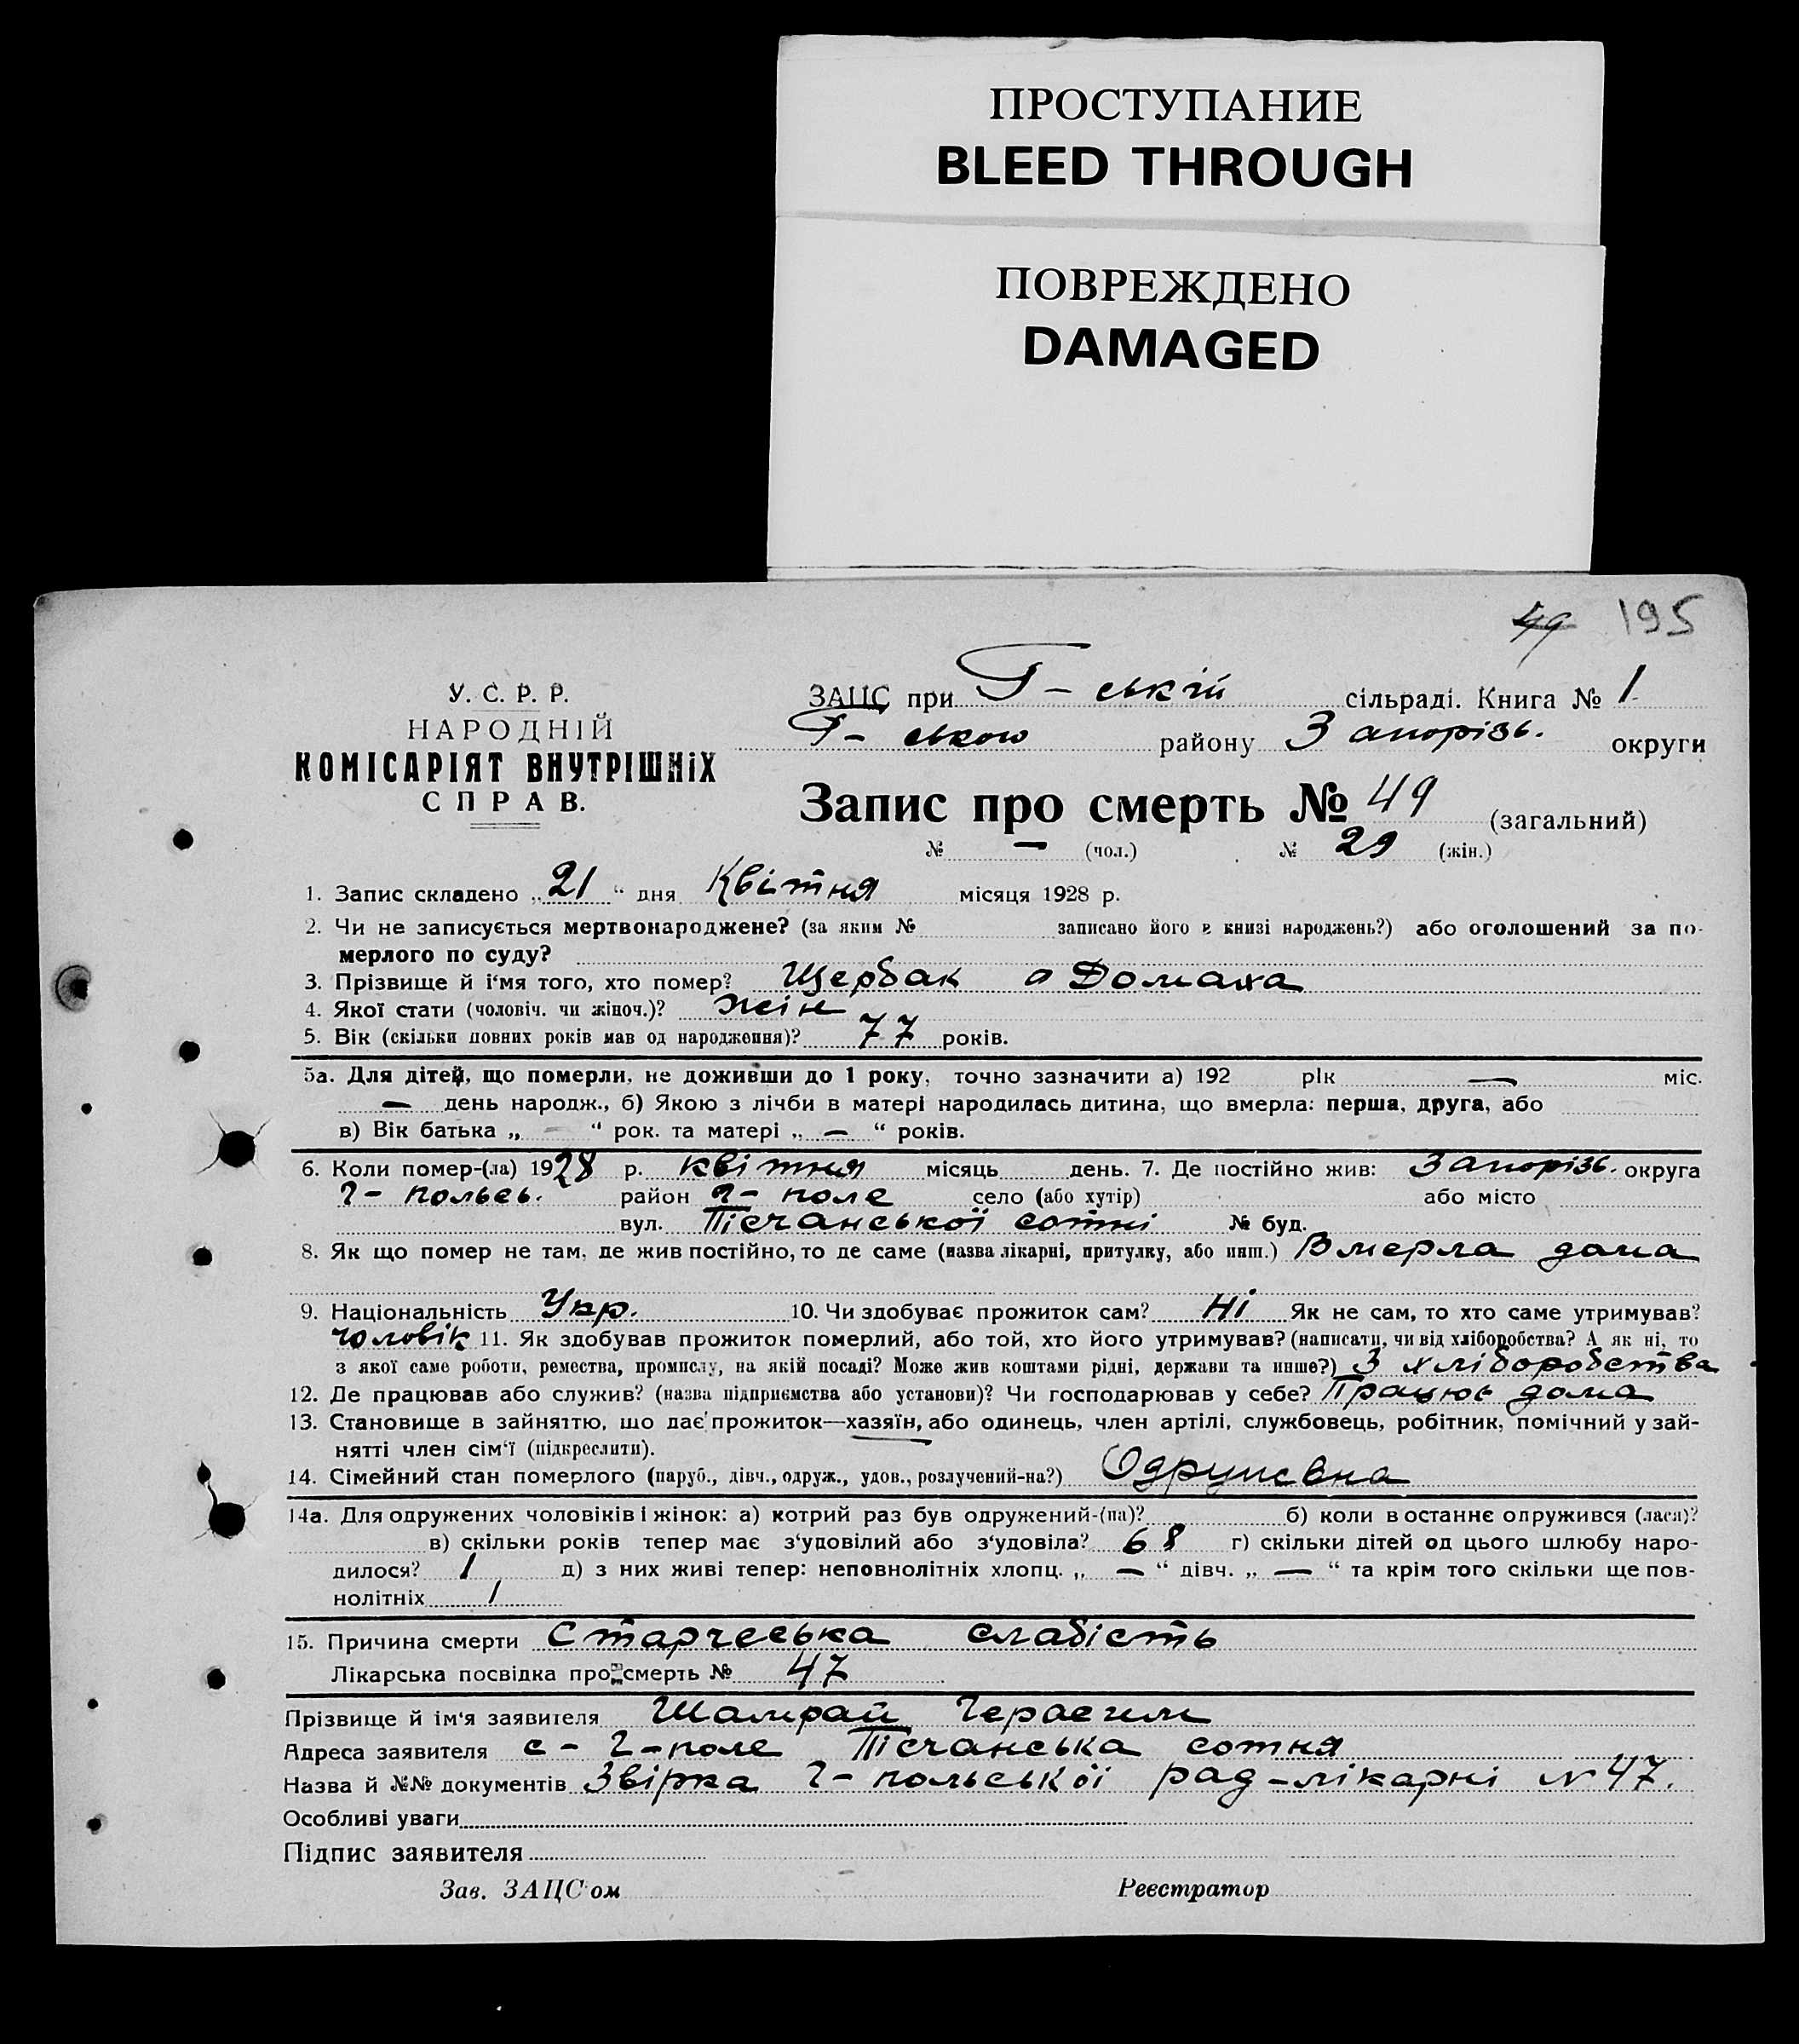 ПРОСТУПАНИЕ
BLEED THROUGH
ПОВРЕЖДЕНО
DAMAGED
49 195
У. С. Р. Р.
НАРОДНІЙ
КОМІСАРІЯТ ВНУТРІШНІХ
СПРАВ.
ЗАЦС при Г-ській сільраді. Книга № 1
Г-ського району Запорізь. округи
Запис про смерть № 49 (загальний)
№ — (чол.) № 29 (жін.)
1. Запис складено „21“ дня Квітня місяця 1928 р.
2. Чи не записується мертвонароджене? (за яким № записано його в книзі народжень?) або оголошений за по-
мерлого по суду?
3. Прізвище й і‘мя того, хто помер? Щербак Домаха
4. Якої стати (чоловіч. чи жіноч.)? жін
5. Вік (скільки повних років мав од народження)? 77 років.
5а. Для дітей, що померли, не доживши до 1 року, точно зазначити а) 192 рік — міс.
— день народж., б) Якою з лічби в матері народилась дитина, що вмерла: перша, друга, або
в) Вік батька „ — “ рок. та матері „ — “ років.
6. Коли помер-(ла) 1928 р. квітня місяць день. 7. Де постійно жив: Запорізь. округа
г-польсь. район г-поле село (або хутір) або місто
вул. Пісчанської сотні № буд.
8. Як що помер не там, де жив постійно, то де саме (назва лікарні, притулку, або инш.) Вмерла дома
9. Національність Укр. 10. Чи здобуває прожиток сам? Ні Як не сам, то хто саме утримував?
чоловік 11. Як здобував прожиток померлий, або той, хто його утримував? (написати, чи від хліборобства? А як ні, то
з якої саме роботи, ремества, промислу, на якій посаді? Може жив коштами рідні, держави та инше?) З хліборобства
12. Де працював або служив? (назва підприємства або установи)? Чи господарював у себе? Працює дома
13. Становище в зайняттю, що дає прожиток—хазяїн, або одинець, член артілі, службовець, робітник, помічний у зай-
нятті член сім‘ї (підкреслити).
14. Сімейний стан померлого (паруб., дівч., одруж., удов., розлучений-на?)
14а. Для одружених чоловіків і жінок: а) котрий раз був одружений-(на)? б) коли востаннє одружився (лася)?
в) скільки років тепер має з‘удовілий або з‘удовіла? 68 г) скільки дітей од цього шлюбу наро-
дилося? 1 д) з них живі тепер: неповнолітніх хлопц. „ — “ дівч. „ — “ та крім того скільки ще пов-
нолітніх 1
15. Причина смерти Старческа слабість
Лікарська посвідка про смерть № 47
Прізвище й ім‘я заявителя Шамрай Герасим
Адреса заявителя с-г-поле Пісчанська сотня
Назва й №№ документів Звірка г-польської рад-лікарні № 47.
Особливі уваги
Підпис заявителя
Зав. ЗАЦС‘ом Реєстратор